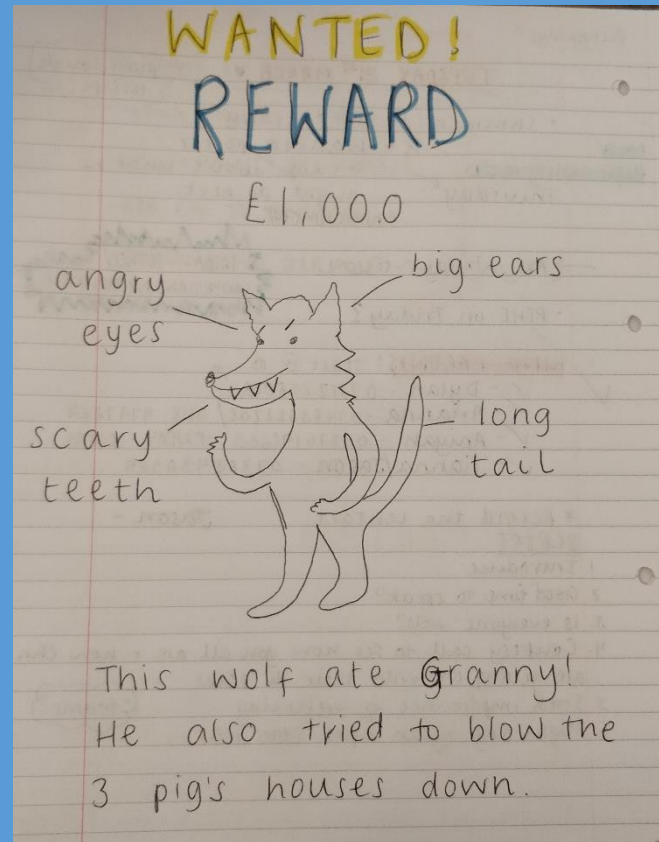 WANTED!
REWARD
£1,000
angry
eyes
big ears
scary
teeth
long
tail
This wolf ate Granny!
He also tried to blow the
3 pig's houses down.